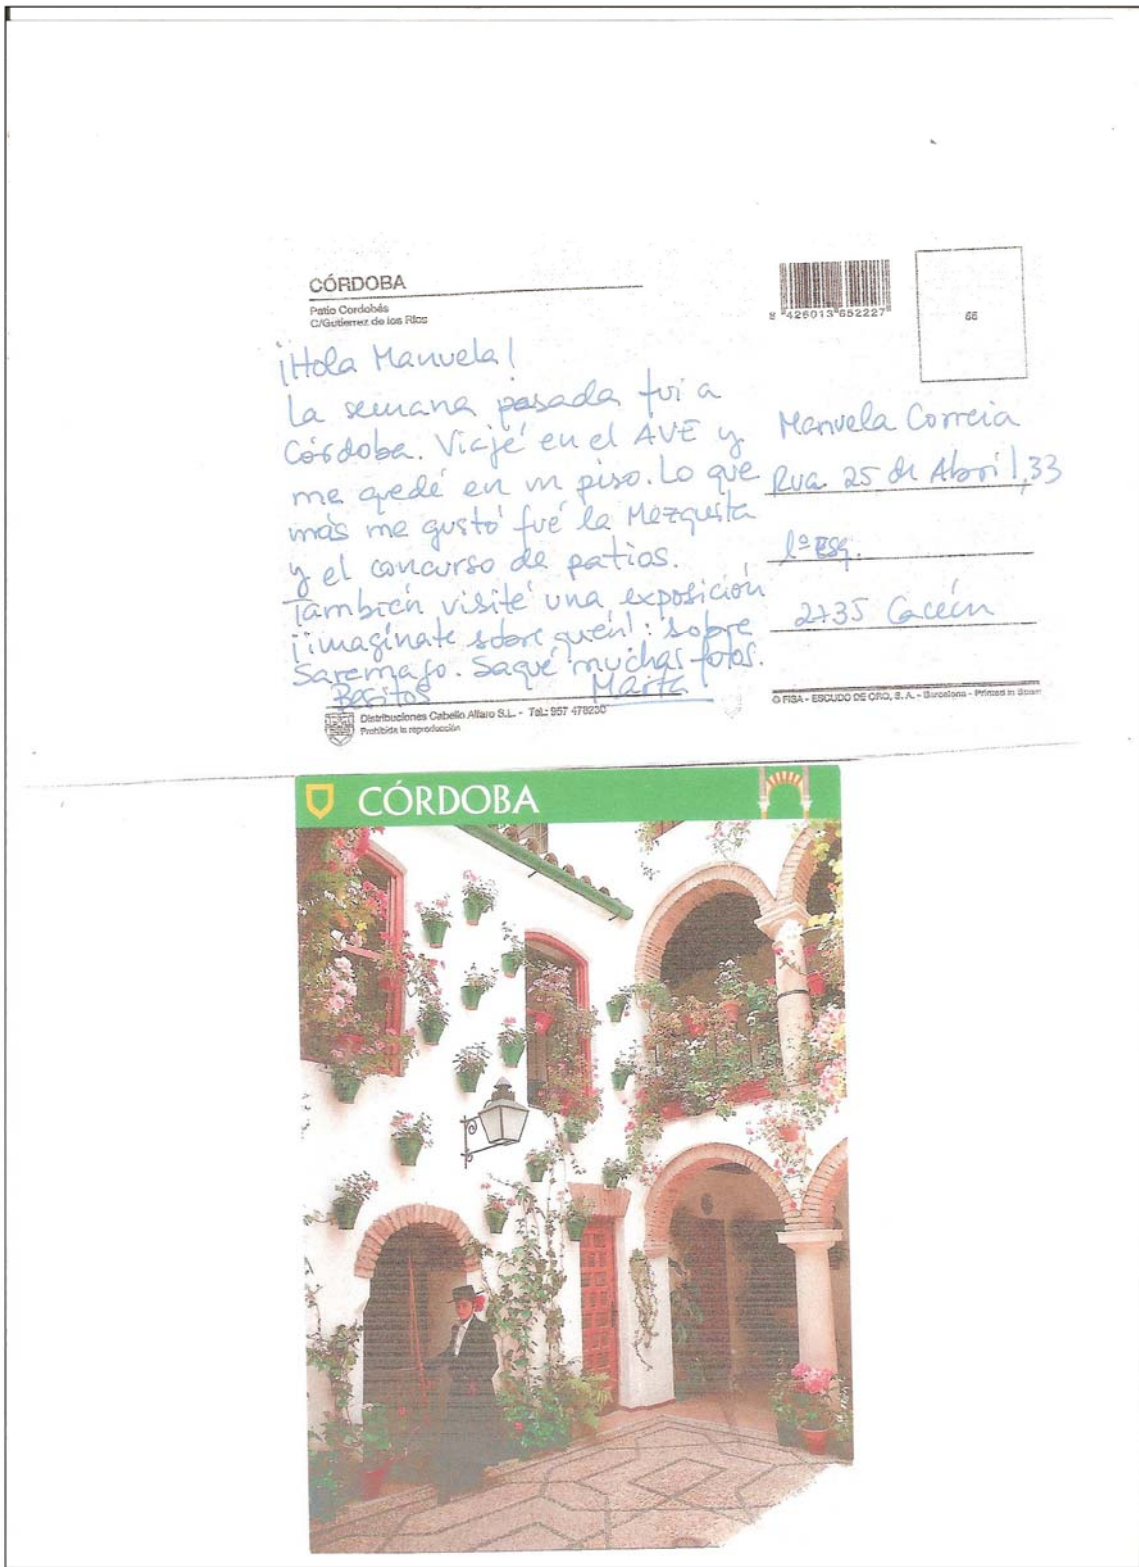 CÓRDOBA
Patio Cordobés
C/Gutierrez de los Rios
8 426013 652227
66
¡Hola Manuela!
La semana pasada fui a
Córdoba. Viajé en el AVE y
me qedé en un piso. Lo que
más me gustó fué la Mezquita
y el concurso de patios.
También visité una exposición
¡imagínate sobre quén!: sobre
Saramago. Saqué muchas fotos.
Besitos Marta
Manuela Correia
Rua 25 de Abril, 33
1º ESq.
2735 Cacém
Distribuciones Cabello Alfaro S.L. - Tel.: 957 478230
Prohibida la reproducción
© FISA - ESCUDO DE ORO, S. A. - Barcelona - Printed in Spain
CÓRDOBA